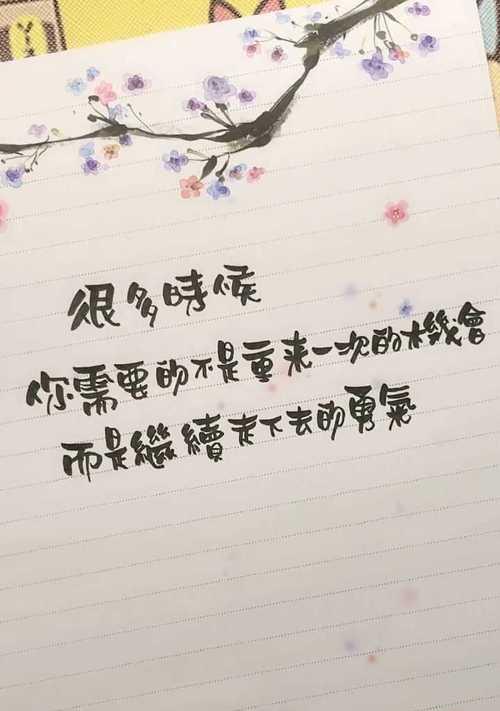 很多時候
你需要的不是重来一次的機會
而是繼續走下去的勇氣